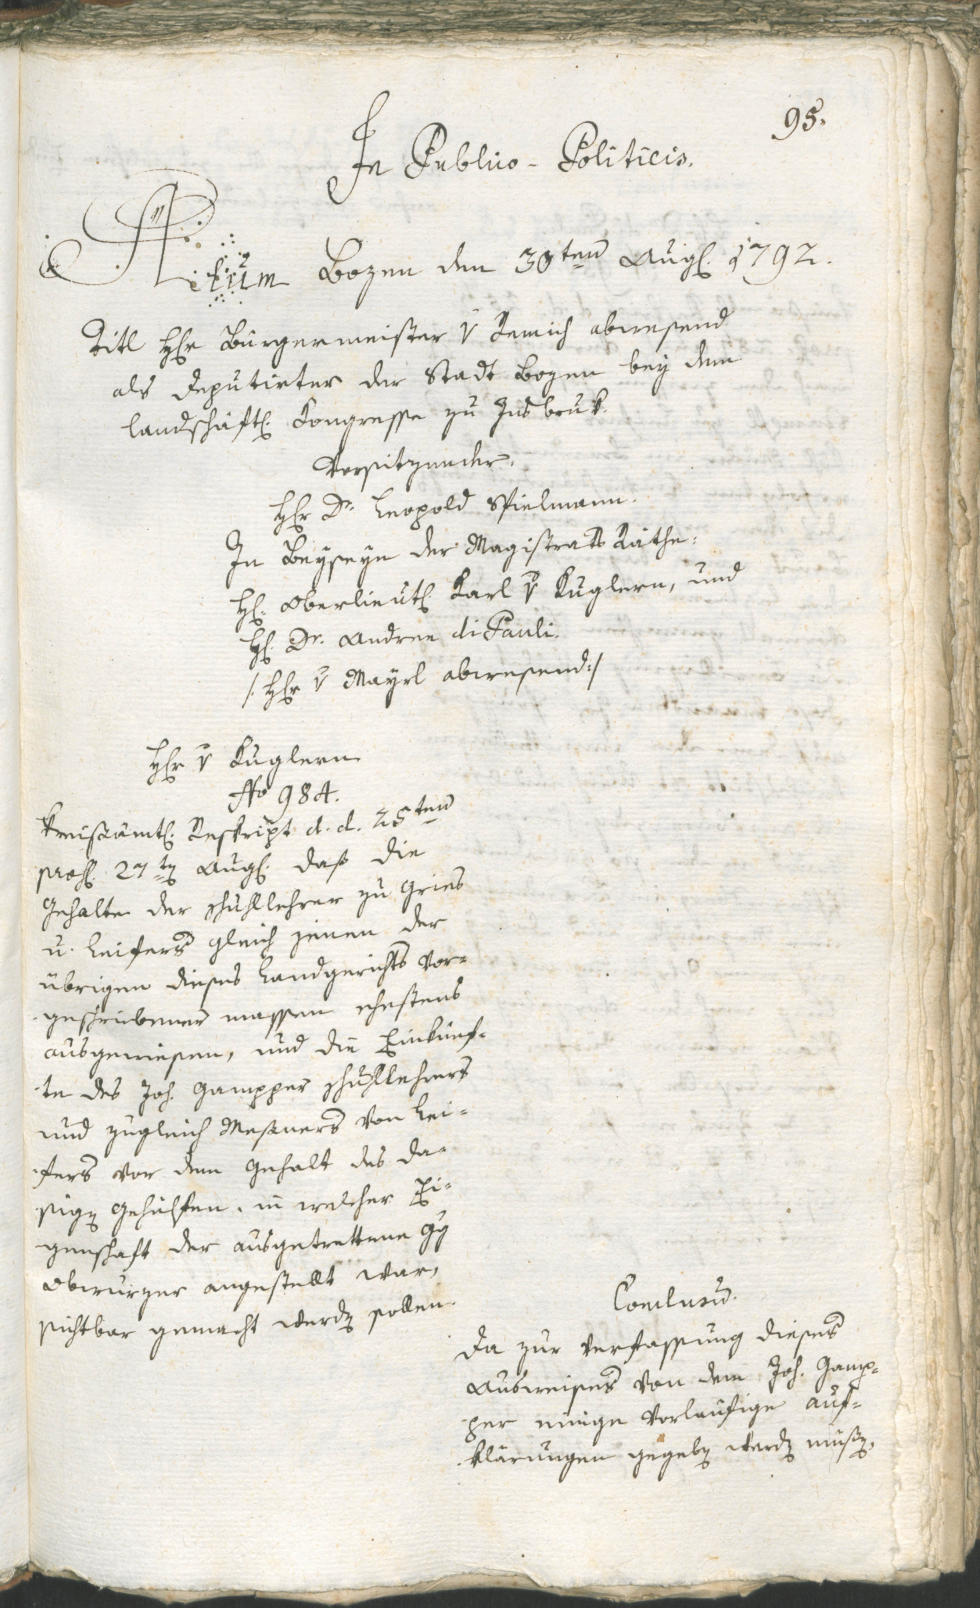 95.
In Publico-Politicis.
Actum Bozen den 30ten Augl. 1792.
Titl Hr Bürgermeister v Remich abwesend
als Deputirter der Stadt Bozen bey dem
landschäftl. Kongresse zu Insbruk.
Vorsitzender.
Hr Dr. Leopold Spielmann.
In Beyseyn der Magistrats Räthe:
H. Oberlieut. Karl v Kuglern, und
H. Dr. Andree di Pauli.
/: Hr v Mayrl abwesend :/
Hr v Kuglern
No 984.
Kreisämtl. Reskript d. d. 25ten
pros. 27tn Augl. daß die
Gehalte der Schullehrer zu Gries
u. Leifers gleich jenen der
übrigen dieses Landgerichts vor-
geschriebener massen ehestens
ausgewiesen, und die Einkünf-
te des Joh. Gampper Schullehrers
und zugleich Messners von Lei-
fers vor dem Gehalt des da-
sign Gehülfen, in welcher Ei-
genschaft der ausgetrettene Gg
Obwurzer angestellt war,
sichtbar gemacht werdn sollen.
Conclusu.
Da zur Verfassung dieses
Ausweises von dem Joh. Gamp-
per einige vorläufige Auf-
klärungen gegebn werdn müßn,